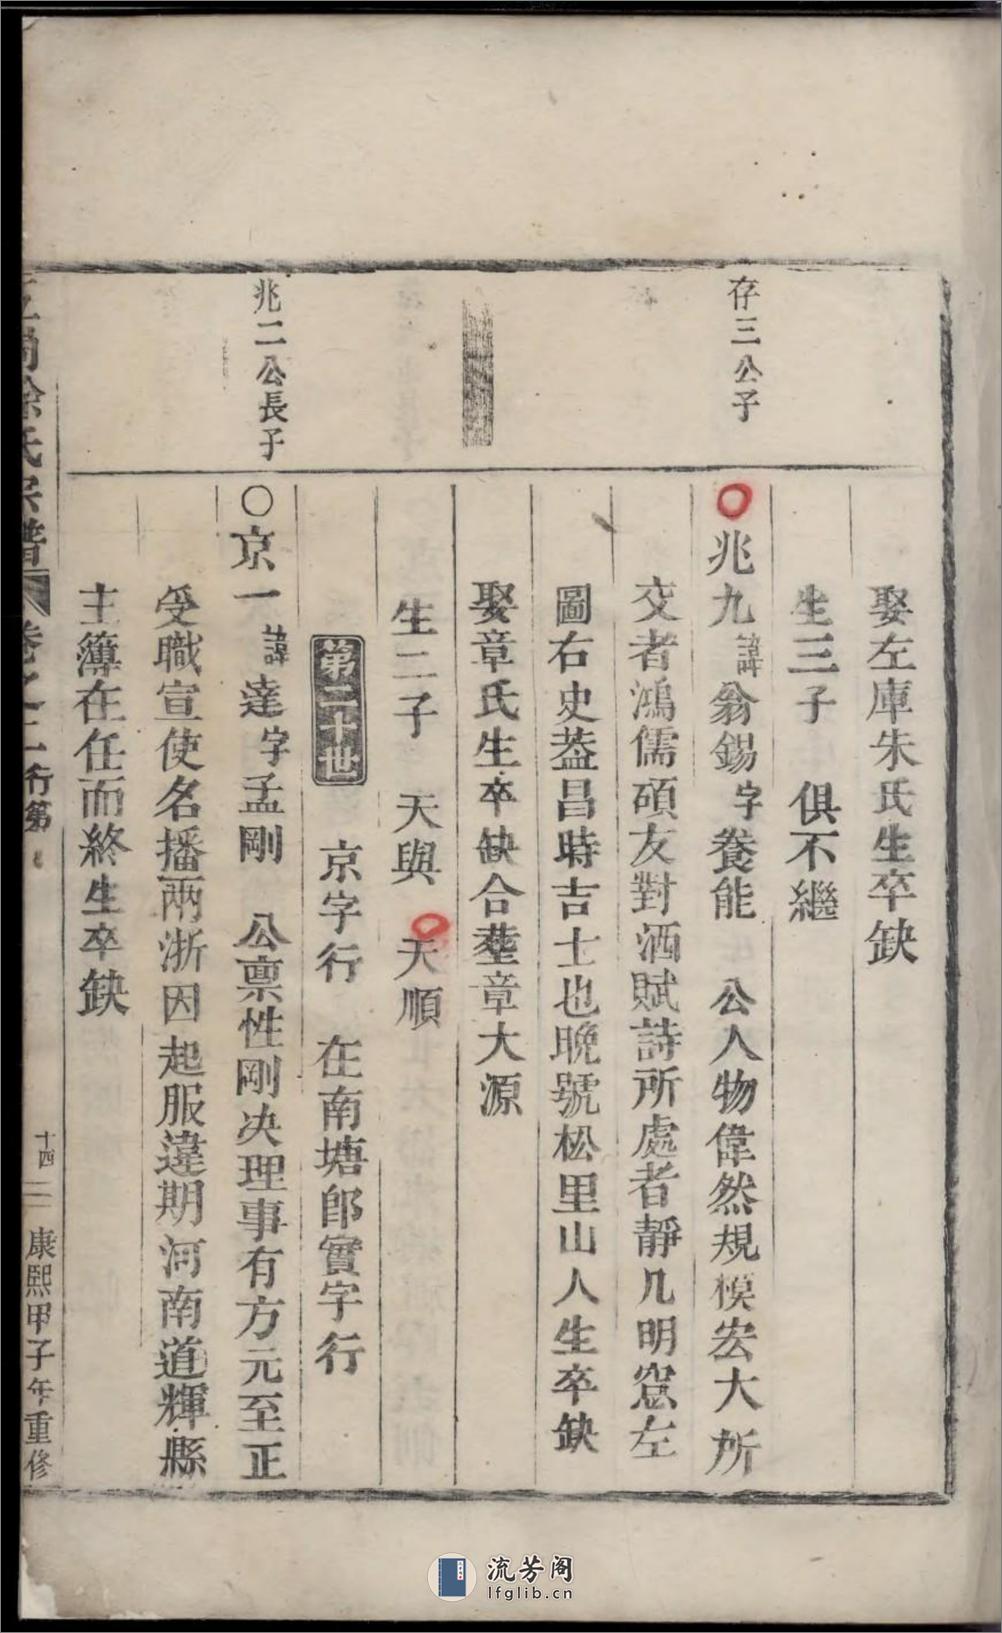 娶左庫朱氏生卒缺
生三子 俱不繼
存三公子
〇兆九諱翁錫字養能 公人物偉然規模宏大所
交者鴻儒碩友對酒賦詩所處者靜几明窓左
圖右史葢昌時吉士也晚號松里山人生卒缺
娶章氏生卒缺合塟章大源
生二子 天與 天順
第二十世 京字行 在南塘郎實字行
兆二公長子
〇京一諱達字孟剛 公禀性剛决理事有方元至正
受職宣使名播兩浙因起服違期河南道輝縣
主簿在任而終生卒缺
徐氏宗譜 卷之二 行第 十四 康熙甲子年重修
流芳阁
lfglib.cn